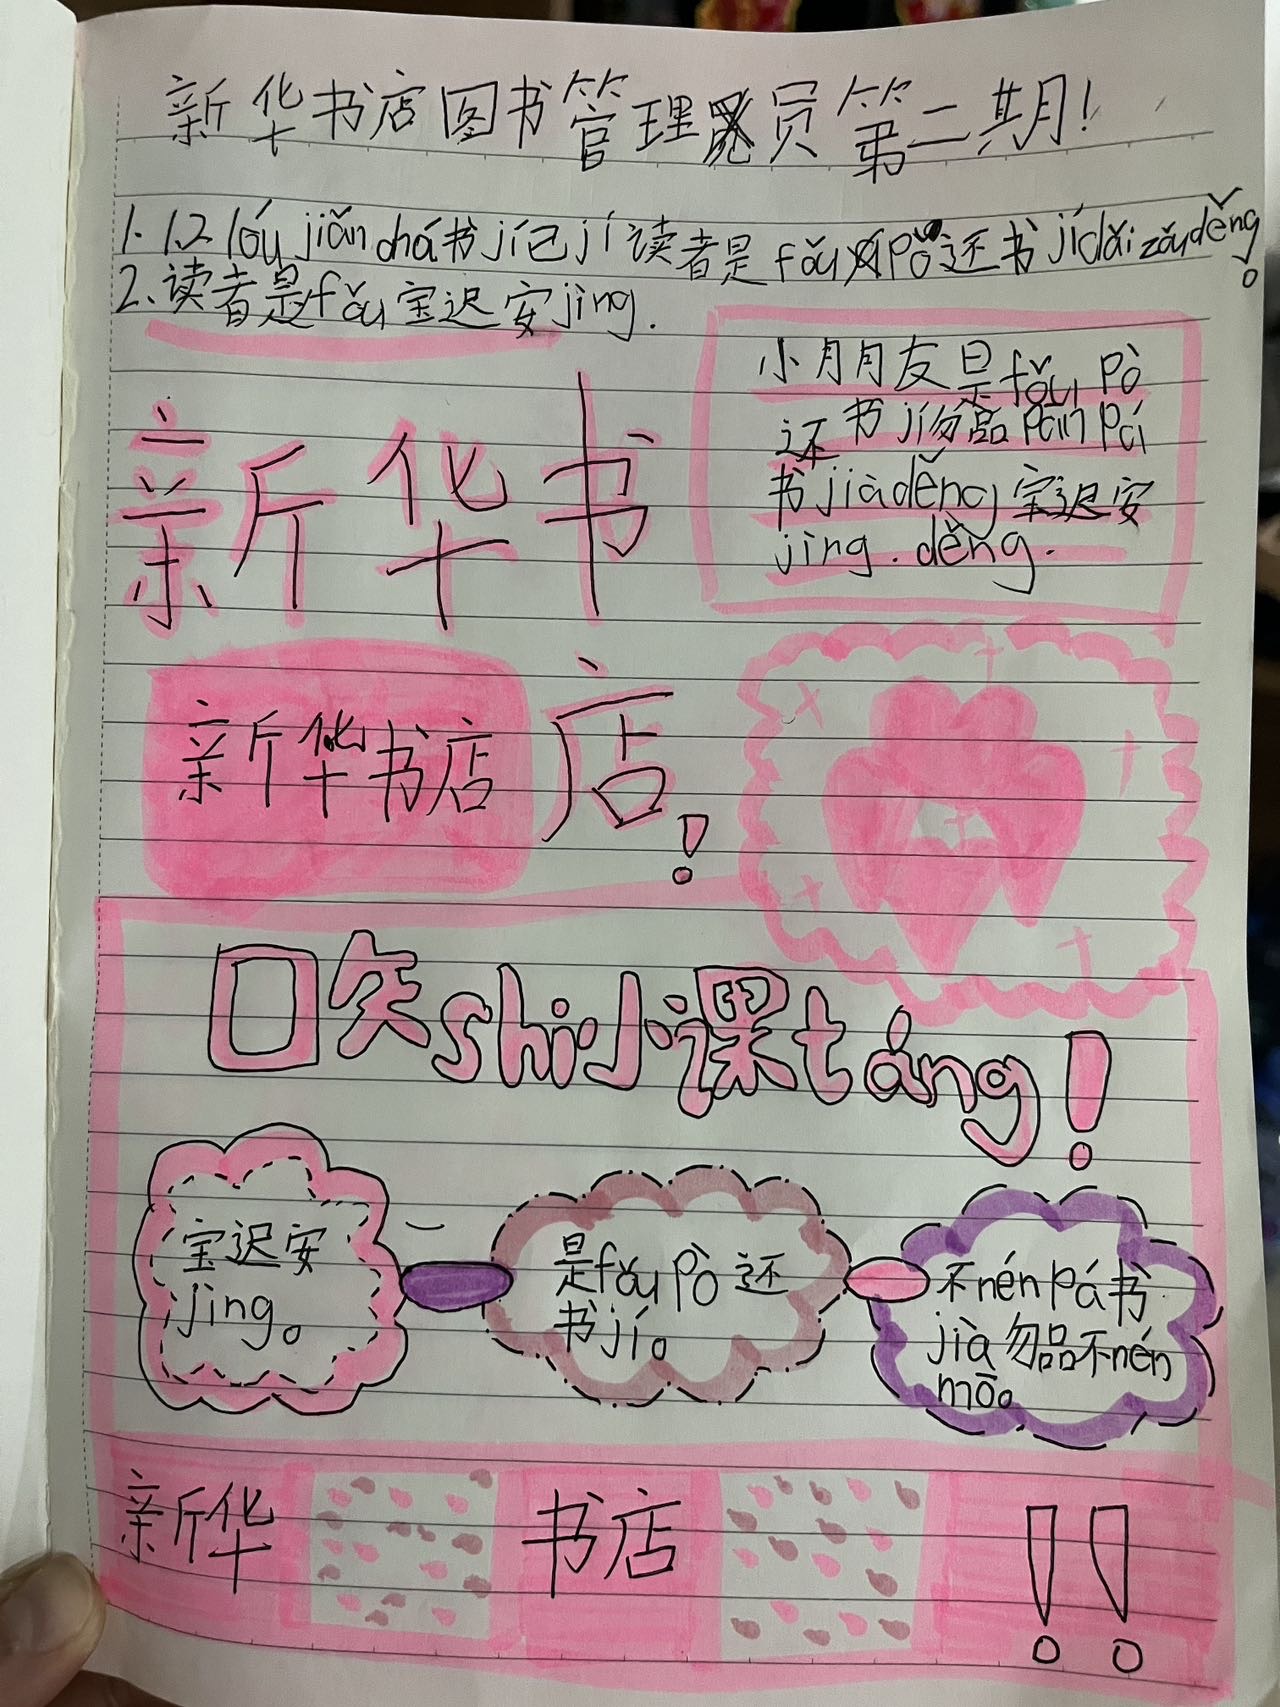 新华书店图书管理员第二期!
1. 1.2 lóu jiǎn chá书jí己jí读者是fǒu pò还书jídǎi zǎu děng。
2.读者是fǒu宝迟安jìng.
小月月友是fǒu pò
还书jí勿品pān pái
书jià děng宝迟安
jìng. děng.
新华书
店!
新华书店
口矢shi小课táng!
宝迟安
jìng。
是fǒu pò还
书jí。
不nén pá书
jià勿品不nén
mō。
新华 书店 !!